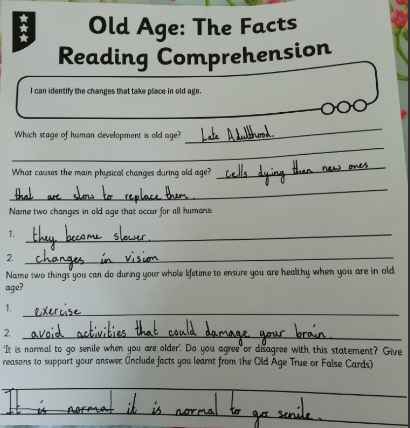 Old Age: The Facts
Reading Comprehension
I can identify the changes that take place in old age.
Which stage of human development is old age? Late Adulthood.
What causes the main physical changes during old age? cells dying then new ones
that are slow to replace them.
Name two changes in old age that occur for all humans:
1. they become slower.
2. changes in vision
Name two things you can do during your whole lifetime to ensure you are healthy when you are in old
age?
1. exercise
2. avoid activities that could damage your brain.
'It is normal to go senile when you are older'. Do you agree or disagree with this statement? Give
reasons to support your answer. (Include facts you learnt from the Old Age True or False Cards)
It is normal it is normal to go senile.